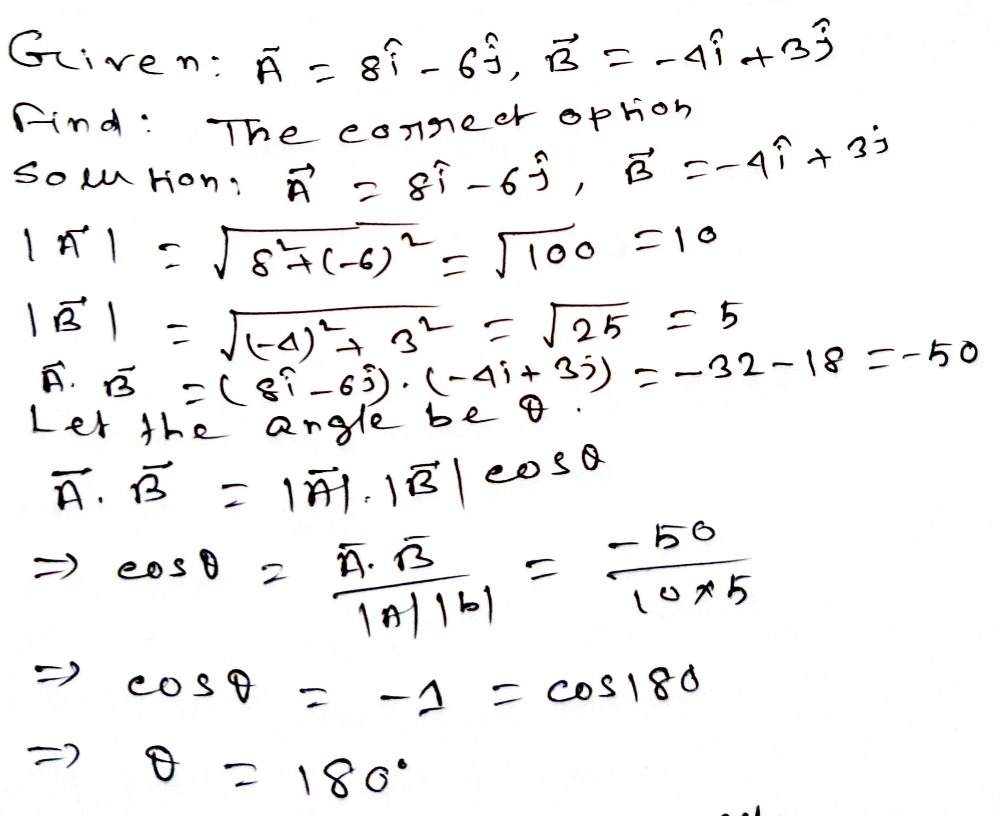 Given: Ā = 8î - 6ĵ, B⃗ = -4î + 3ĵ
Find: The correct option
Solution: A⃗ = 8î - 6ĵ, B⃗ = -4î + 3j
|A⃗| = √(8² + (-6)²) = √100 = 10
|B⃗| = √((-4)² + 3²) = √25 = 5
A⃗. B⃗ = (8î - 6ĵ). (-4i + 3j) = -32 - 18 = -50
Let the angle be θ.
A⃗. B⃗ = |A⃗|. |B⃗| cosθ
⇒ cosθ = A⃗. B⃗ / |A| |b| = -50 / 10×5
⇒ cosθ = -1 = cos180
⇒ θ = 180°